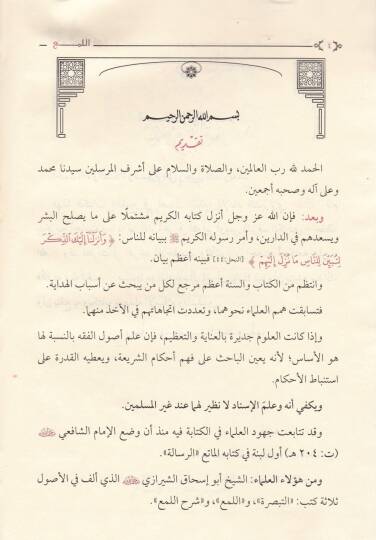 ٤ اللمـــع
بسم الله الرحمن الرحيم
تقديم
الحمد لله رب العالمين، والصلاة والسلام على أشرف المرسلين سيدنا محمد
وعلى آله وصحبه أجمعين.
وبعد: فإن الله عز وجل أنزل كتابه الكريم مشتملًا على ما يصلح البشر
ويسعدهم في الدارين، وأمر رسوله الكريم ﷺ ببيانه للناس: ﴿وَأَنزَلْنَا إِلَيْكَ الذِّكْرَ
لِتُبَيِّنَ لِلنَّاسِ مَا نُزِّلَ إِلَيْهِمْ﴾ [النحل:٤٤] فبينه أعظم بيان.
وانتظم من الكتاب والسنة أعظم مرجع لكل من يبحث عن أسباب الهداية.
فتسابقت همم العلماء نحوهما، وتعددت اتجاهاتهم في الأخذ منهما.
وإذا كانت العلوم جديرة بالعناية والتعظيم، فإن علم أصول الفقه بالنسبة لها
هو الأساس؛ لأنه يعين الباحث على فهم أحكام الشريعة، ويعطيه القدرة على
استنباط الأحكام.
ويكفي أنه وعلمَ الإسناد لا نظير لهما عند غير المسلمين.
وقد تتابعت جهود العلماء في الكتابة فيه منذ أن وضع الإمام الشافعي
(ت: ٢٠٤ هـ) أول لبنة في كتابه الماتع «الرسالة».
ومن هؤلاء العلماء: الشيخ أبو إسحاق الشيرازي الذي ألف في الأصول
ثلاثة كتب: «التبصرة»، و«اللمع»، و«شرح اللمع».